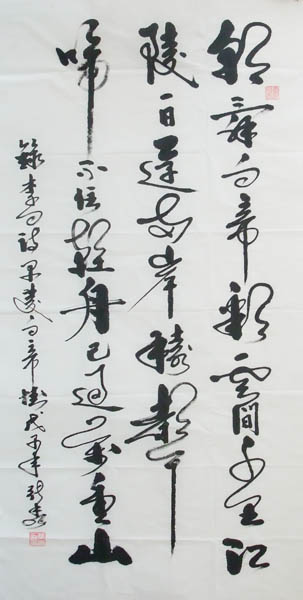 朝辭白帝彩雲間千里江
陵一日還兩岸猿聲
啼不住輕舟已過萬重山
錄李白詩早發白帝城戊子年